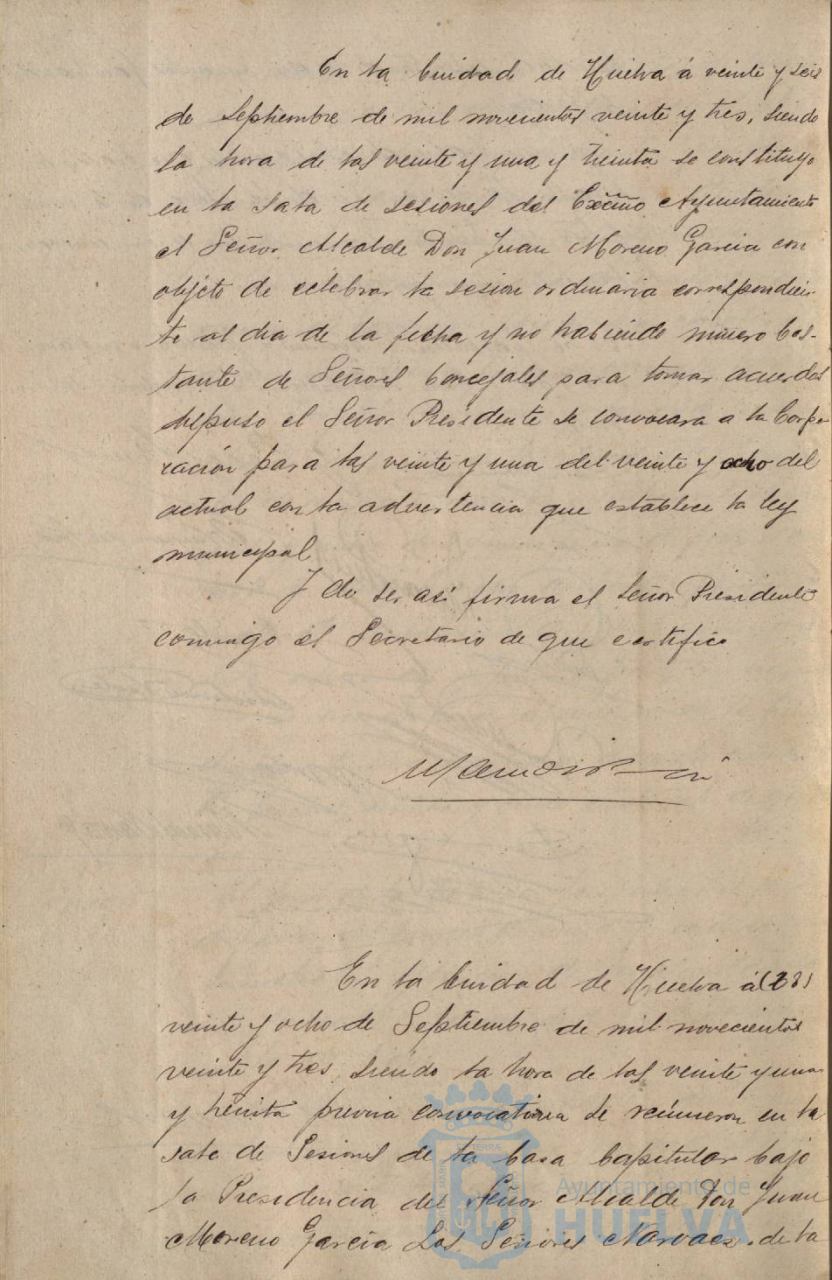 En la Ciudad de Huelva á veinte y seis
de Septiembre de mil novecientos veinte y tres, siendo
la hora de las veinte y una y treinta se constituyo
en la sala de sesiones del Excmo Ayuntamiento
el Señor Alcalde Don Juan Moreno Garcia con
objeto de celebrar la sesion ordinaria correspondien-
te al dia de la fecha y no habiendo número bas-
tante de Señores Concejales para tomar acuerdos
dispuso el Señor Presidente se convocara a la Corpo
ración para las veinte y una del veinte y ocho del
actual con la advertencia que establece la ley
municipal
Y de ser asi firma el Señor Presidente
conmigo el Secretario de que certifico
En la Ciudad de Huelva á (28)
veinte y ocho de Septiembre de mil novecientos
veinte y tres siendo la hora de las veinte y una
y treinta previa convocatoria se reunieron en la
sala de Sesiones de la Casa Capitular bajo
la Presidencia del Señor Alcalde Don Juan
Moreno Garcia Los Señores Narvaez, de la
Ayuntamiento de
HUELVA